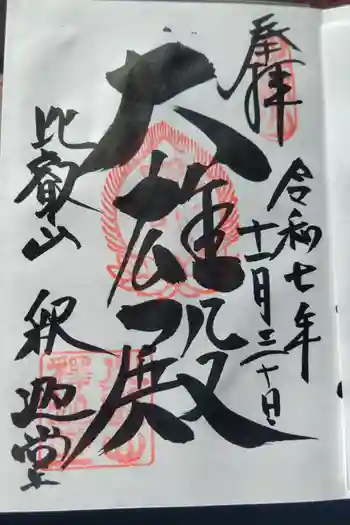 奉拝
令和七年
十一月三十日
大雄殿
比叡山
釈迦堂